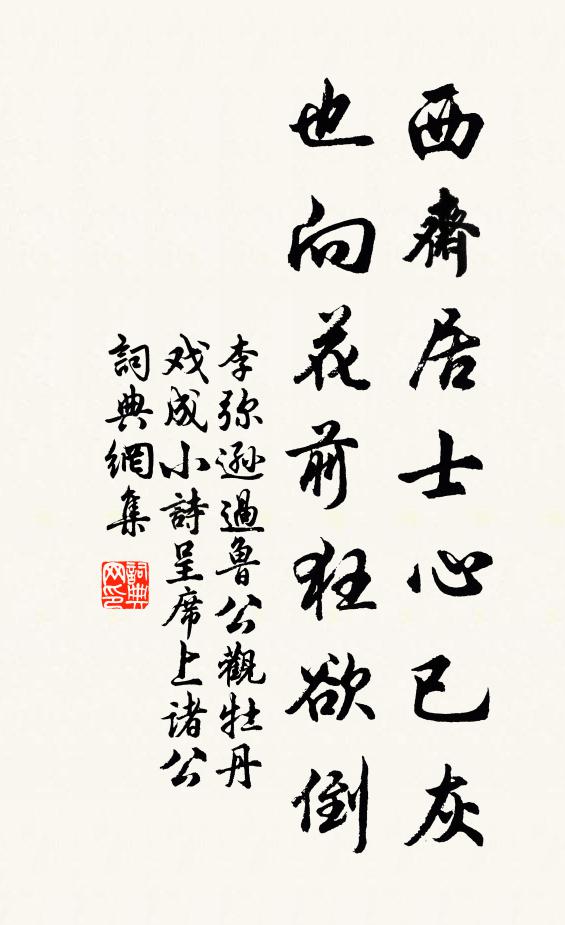 西齋居士心已灰
也向花前狂欲倒
李弥遜過魯公觀牡丹
戏成小詩呈席上诸公
詞典網集
詞典网印